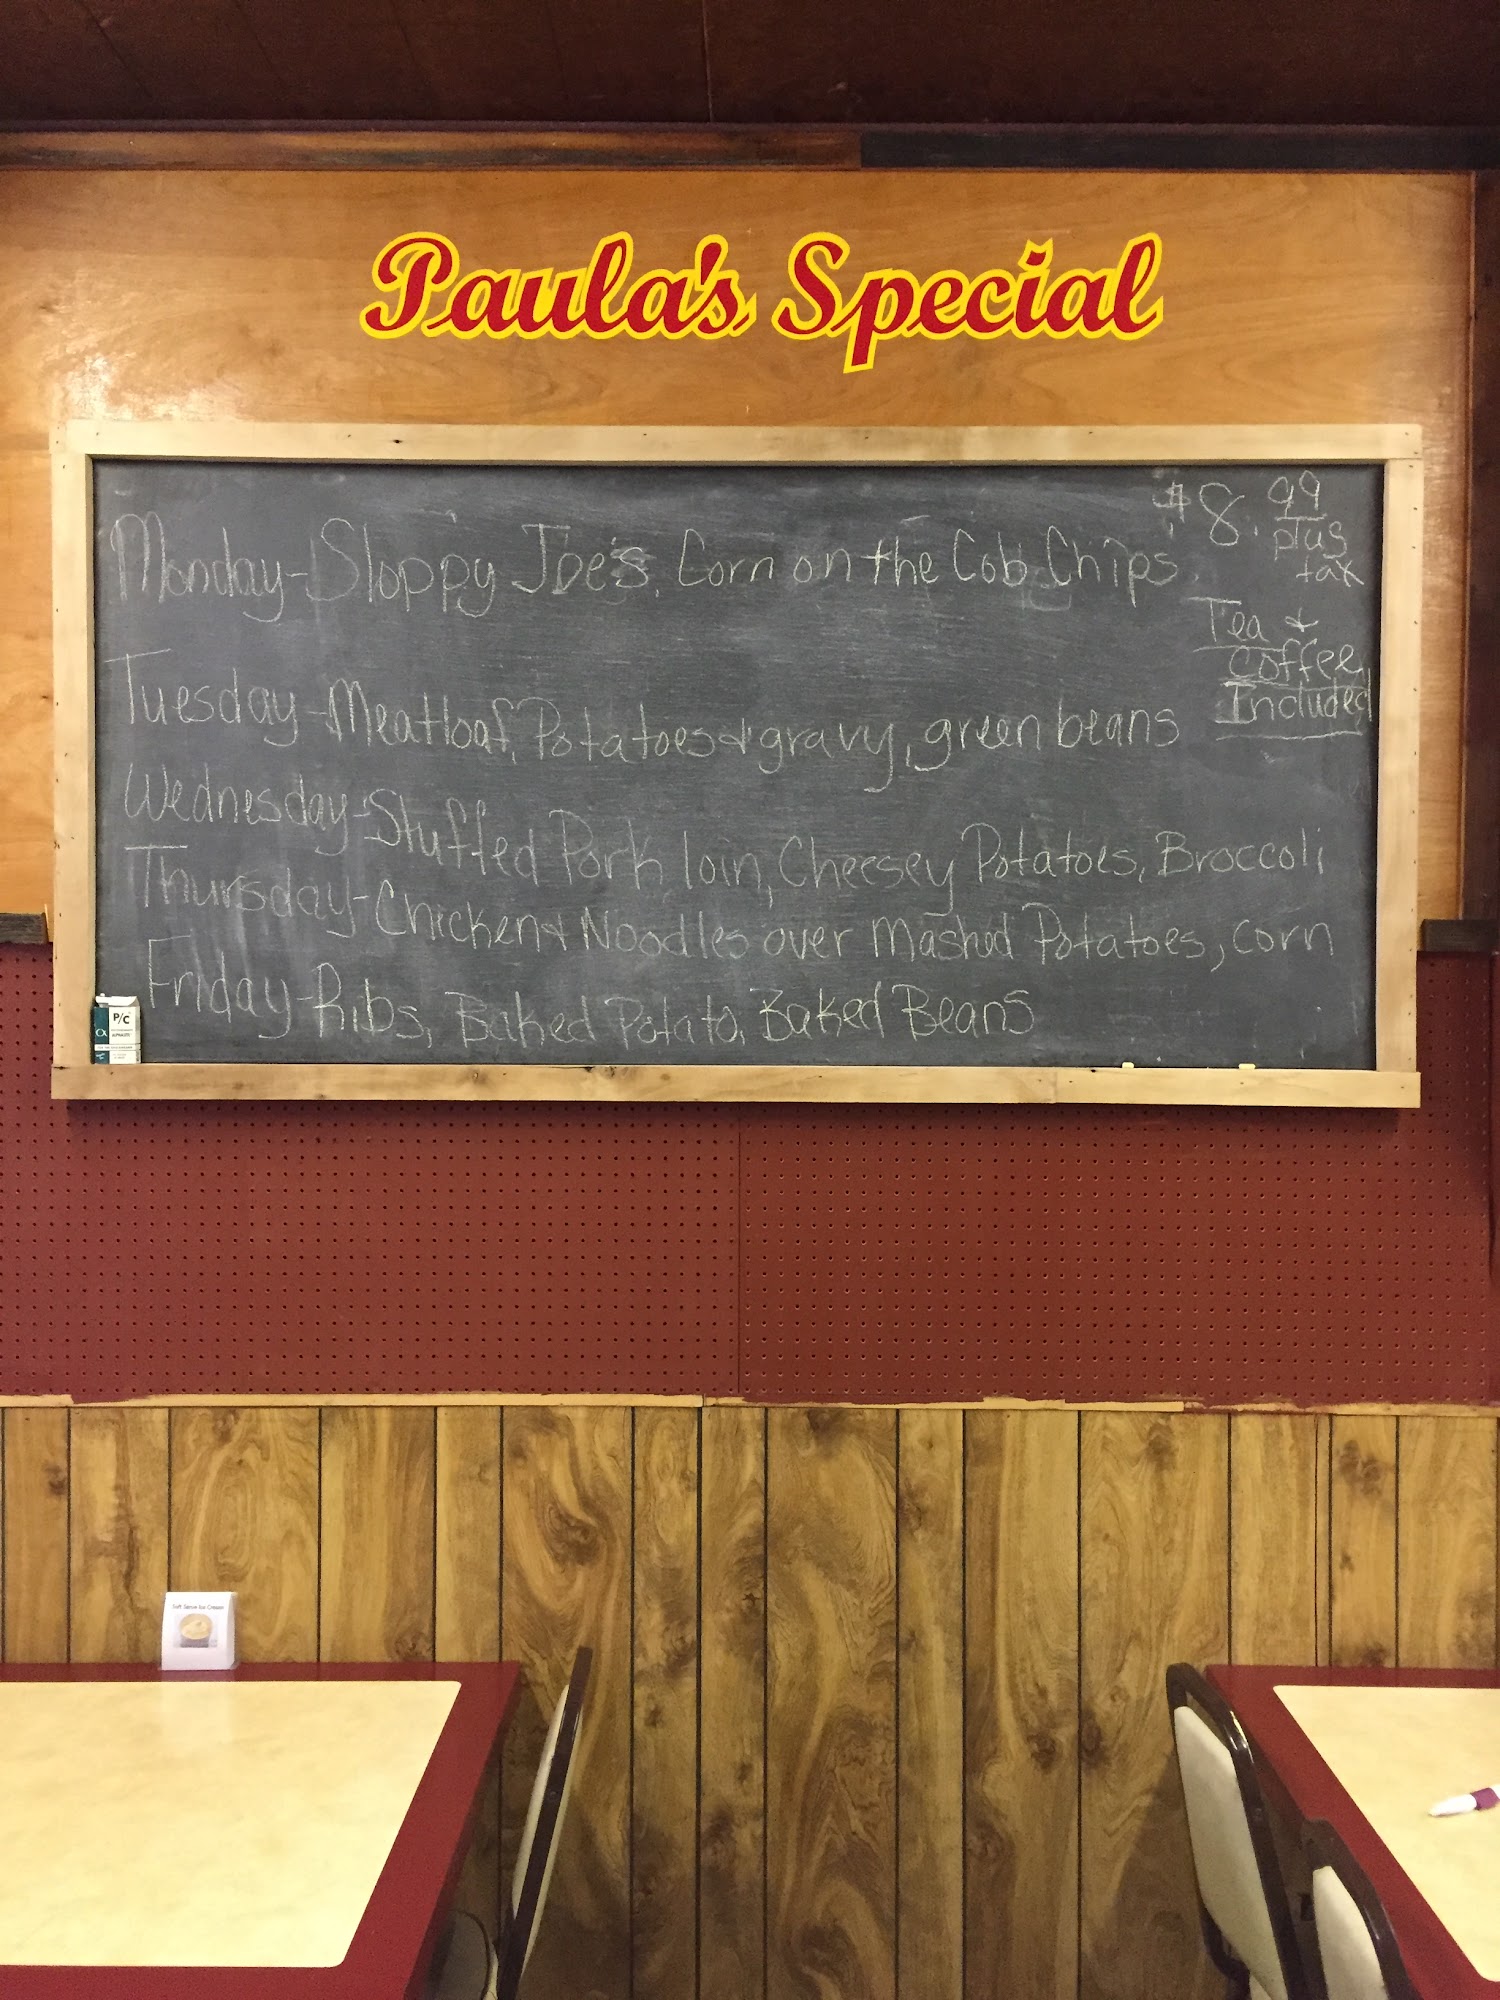 Paula's Special
$8.99
plus
tax
Monday-Sloppy Joe's, Corn on the Cob, Chips
Tea &
coffee
Included
Tuesday-Meatloaf, Potatoes & gravy, green beans
Wednesday-Stuffed Pork loin, Cheesey Potatoes, Broccoli
Thursday-Chicken & Noodles over Mashed Potatoes, corn
Friday-Ribs, Baked Potato, Baked Beans
P/C
Soft Serve Ice Cream